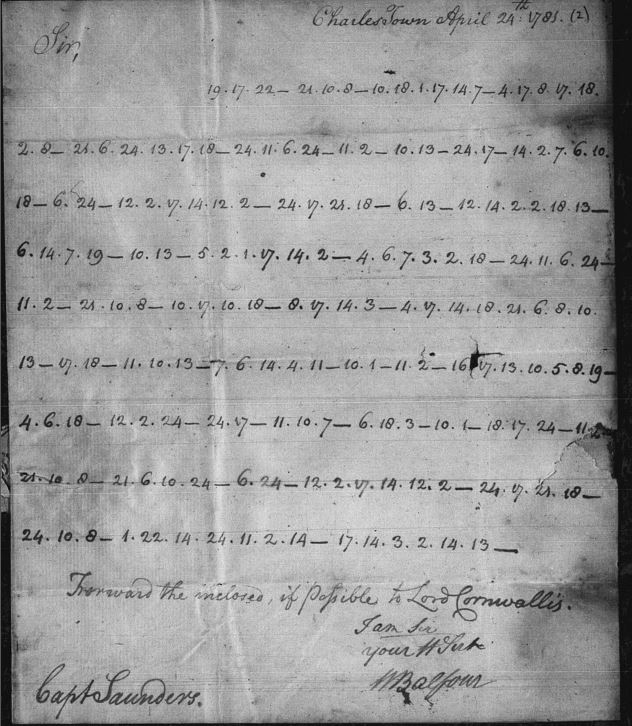 Charles Town April 24th 1781. (2)
Sir,
19. 17. 22 — 21. 10. 8 — 10. 18. 1. 17. 14. 7 — 4. 17. 8. 17. 18.
2. 8 — 21. 6. 24. 13. 17. 18 — 24. 11. 6. 24 — 11. 2 — 10. 13 — 24. 17 — 14. 2. 7. 6. 10.
18 — 6. 24 — 12. 2. 17. 14. 12. 2 — 24. 17. 21. 18 — 6. 13 — 12. 14. 2. 2. 18. 13 —
6. 14. 7. 19 — 10. 13 — 5. 2. 1. 17. 14. 2 — 4. 6. 7. 3. 2. 18 — 24. 11. 6. 24 —
11. 2 — 21. 10. 8 — 10. 17. 10. 18 — 8. 17. 14. 3 — 4. 17. 14. 18. 21. 6. 8. 10.
13 — 17. 18 — 11. 10. 13 — 7. 6. 14. 4. 11 — 10. 1 — 11. 2 — 16. 17. 13. 10. 5. 8. 19 —
4. 6. 18 — 12. 2. 24 — 24. 17 — 11. 10. 7 — 6. 18. 3 — 10. 1 — 18. 17. 24 — 11. 2 —
21. 10. 8 — 21. 6. 10. 24 — 6. 24 — 12. 2. 17. 14. 12. 2 — 24. 17. 21. 18 —
24. 10. 8 — 1. 22. 14. 24. 11. 2. 14 — 17. 14. 3. 2. 14. 13 —
Forward the inclosed, if Possible to Lord Cornwallis.
I am Sir
your H Servt
NBalfour
Capt Saunders.